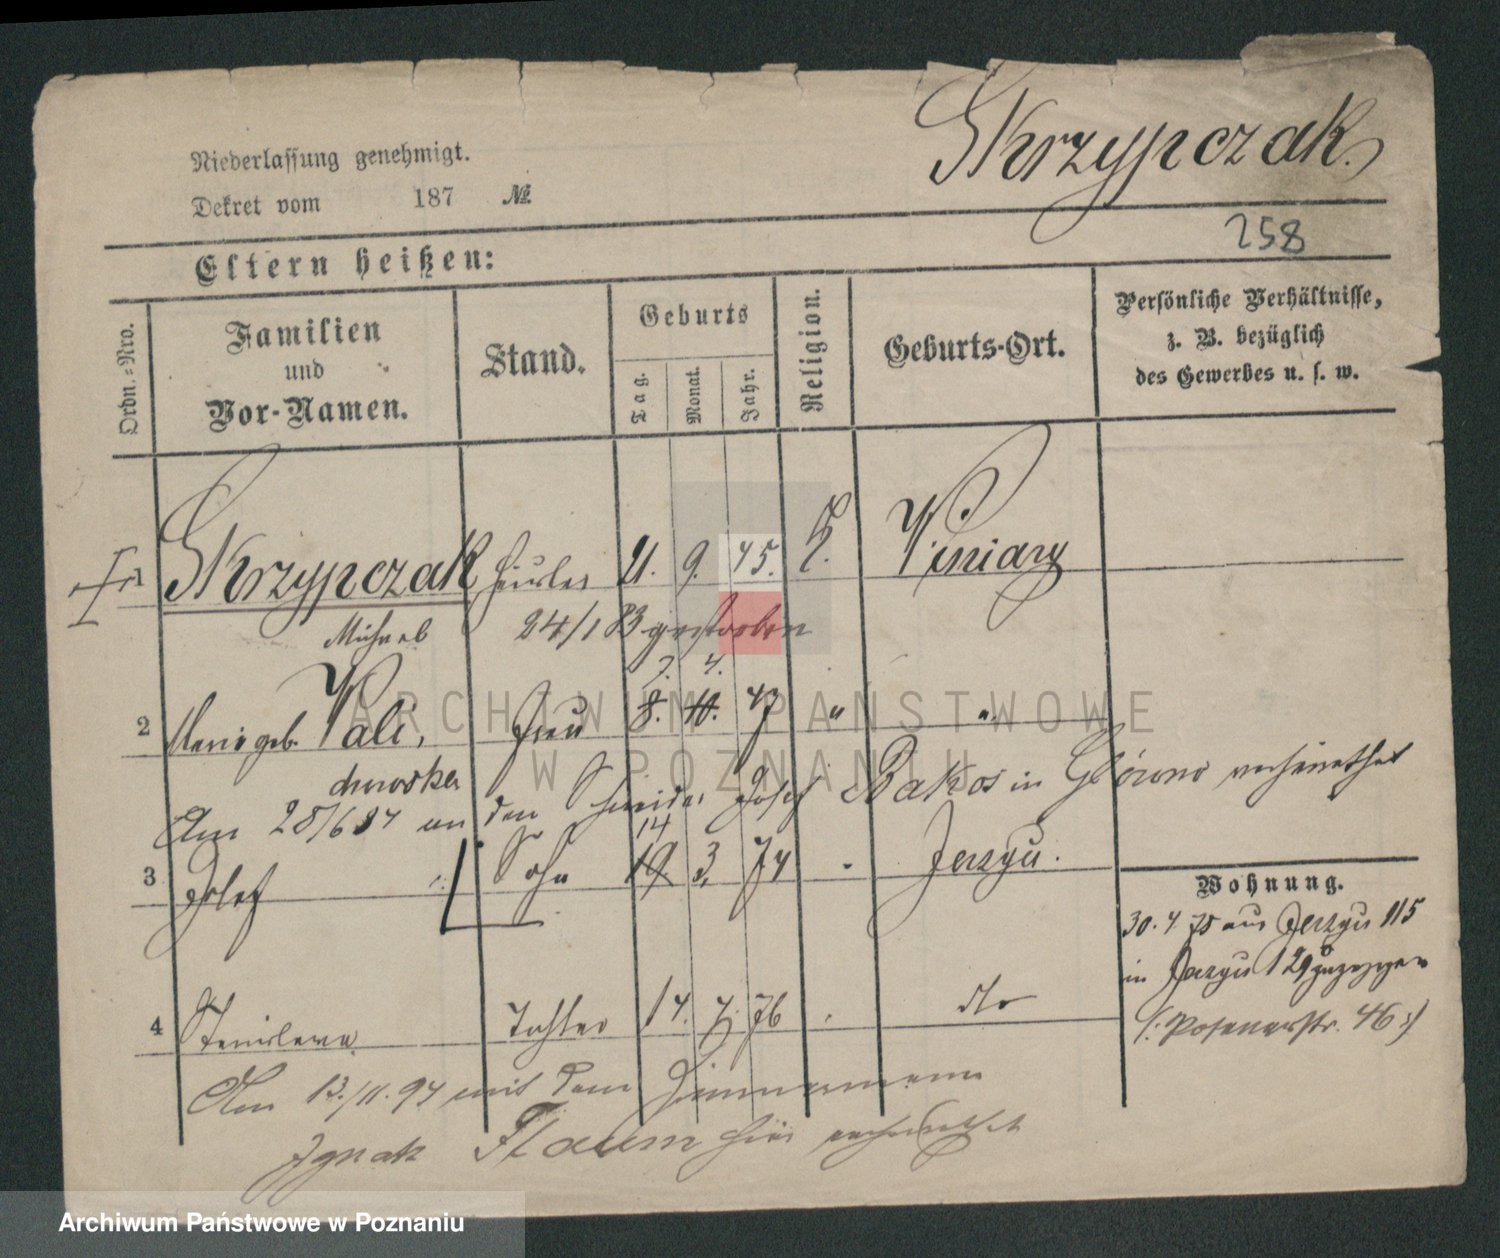 Skrzypczak.
Niederlassung genehmigt.
Dekret vom 187 №
258
Eltern heißen:
Ordn.-Nro.
Familien und Vor-Namen.
Stand.
Geburts
Tag.
Monat.
Jahr.
Religion.
Geburts-Ort.
Persönliche Verhältnisse, z. B. bezüglich des Gewerbes u. s. w.
1 Skrzypczak Häusler 21. 9. 45. K. Winiary
Michael 24/1 83 gestorben
7. 4.
2 Marie geb. Wali, Frau 8. 10. 47 " "
chowska
Am 28/6 84 an den Schneider Josef Bakos in Główno verheirathet
14
3 Josef Sohn 19. 3. 74 " Jerzyce.
Wohnung.
30. 4. 75 aus Jerzyce 115
in Jerzyce 129 zugezogen
(: Posenerstr. 46 :)
4 Stanislawa Tochter 17. 4. 76 " dto
Am 13./11. 94 mit dem Zimmermann
Ignatz Flaum hier verheirathet
ARCHIWUM PAŃSTWOWE
W POZNANIU
Archiwum Państwowe w Poznaniu